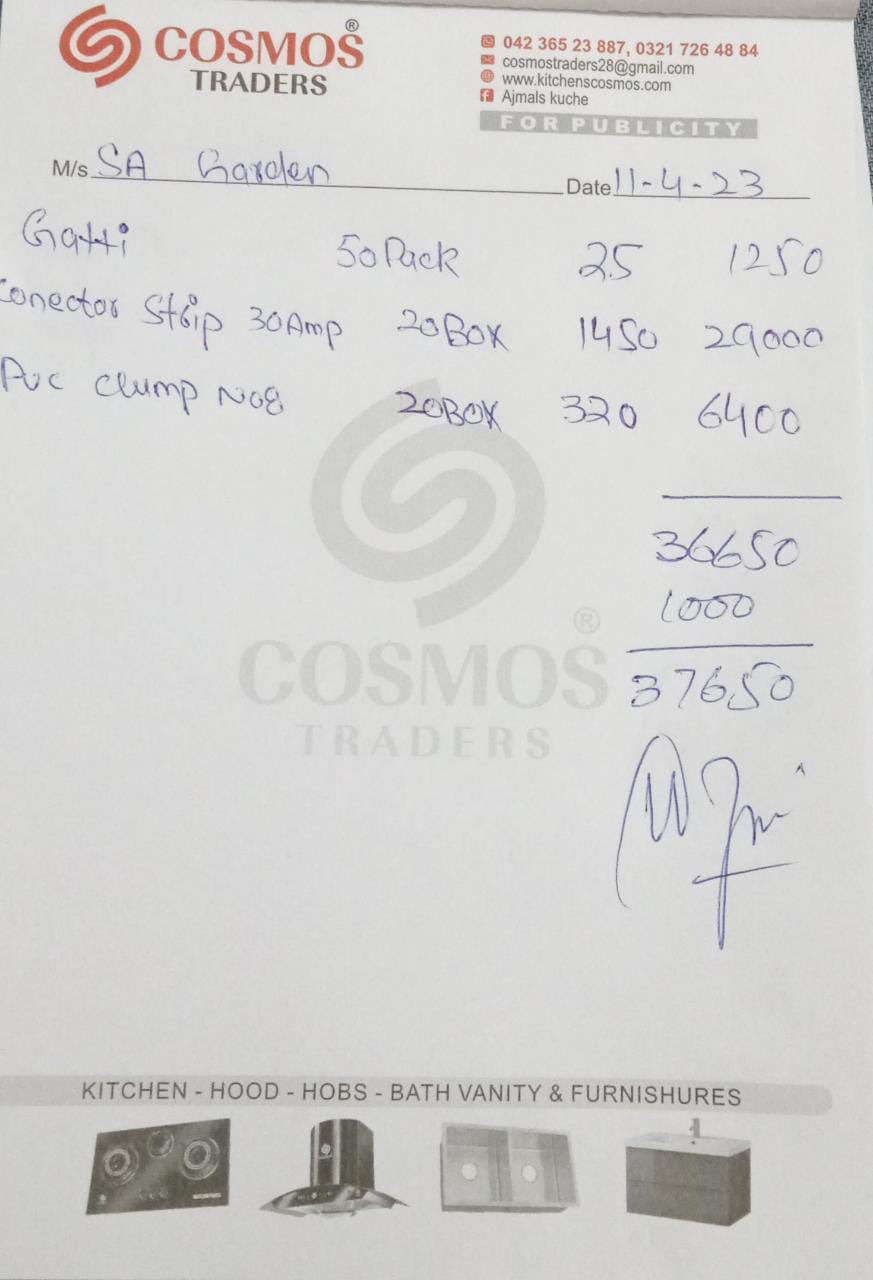 COSMOS ®
TRADERS
042 365 23 887, 0321 726 48 84
cosmostraders28@gmail.com
www.kitchenscosmos.com
Ajmals kuche
FOR PUBLICITY
M/s SA Garden Date 11-4-23
Gatti 50 Pack 25 1250
Conector Strip 30Amp 20BOX 1450 29000
Pvc Clump No8 20BOX 320 6400
36650
1000
37650
COSMOS ®
TRADERS
KITCHEN - HOOD - HOBS - BATH VANITY & FURNISHURES